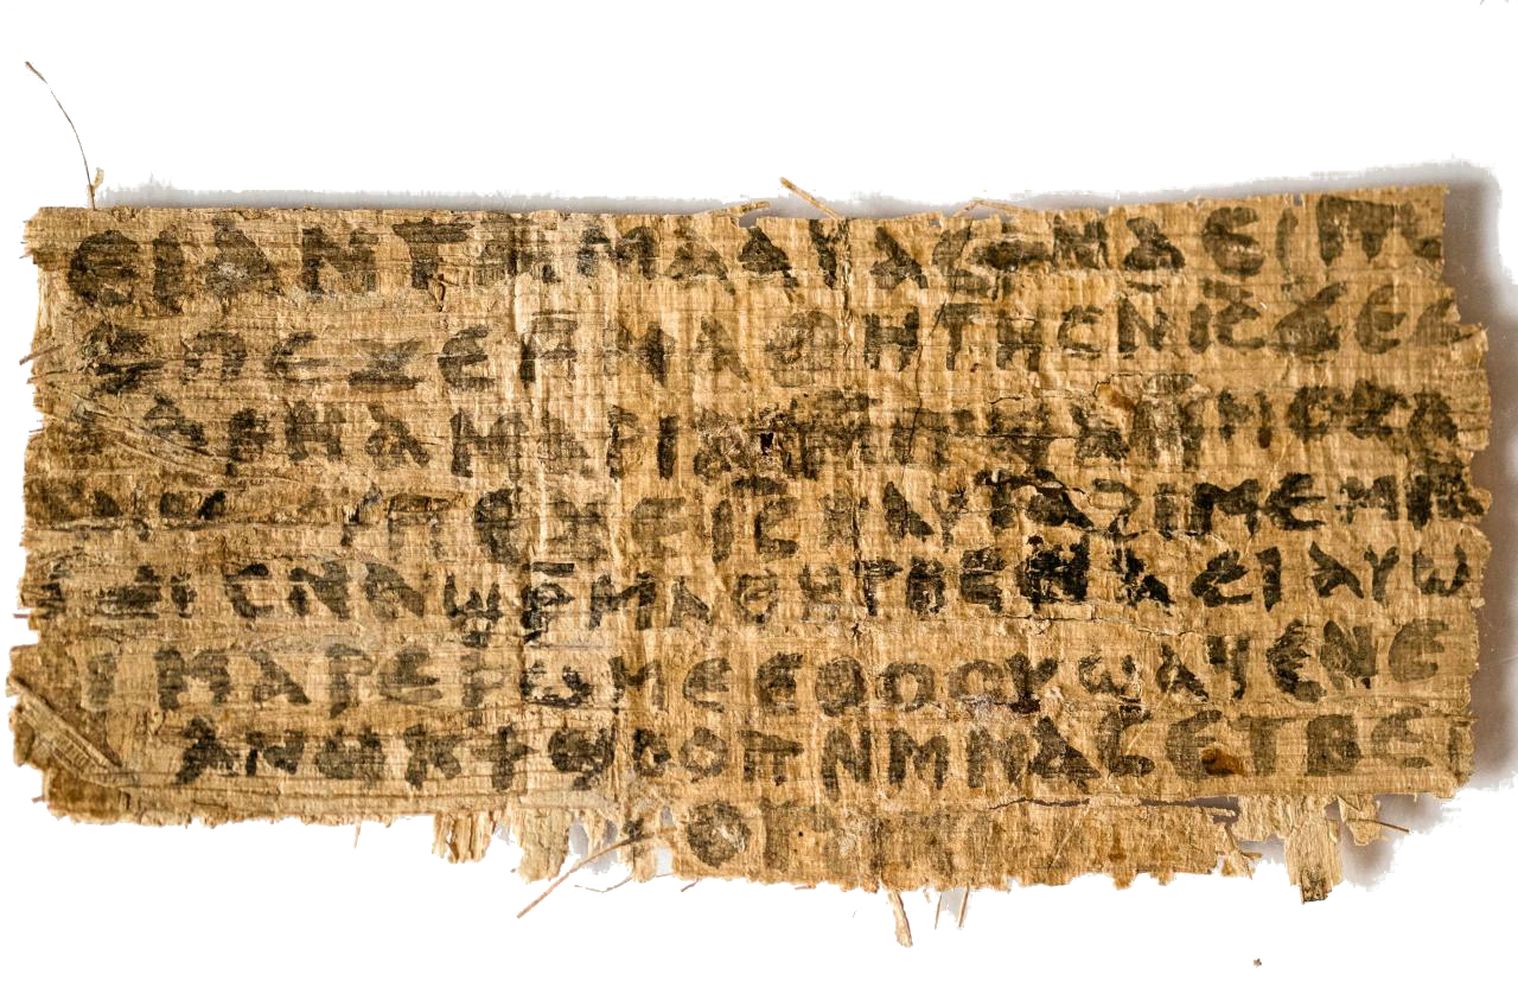 ⲉⲓⲁⲛ ⲧⲁⲙⲁⲁⲩ ⲁⲥϯ ⲛⲁⲉⲓ ⲡⲱ
ⲡⲉϫⲉ ⲙⲙⲁⲑⲏⲧⲏⲥ ⲛⲓ̅ⲥ̅ ϫⲉ ⲥ
ⲁⲣⲛⲁ ⲙⲁⲣⲓⲁⲙ ⲙⲡϣⲁ ⲙⲙⲟⲥ ⲁ
ⲡⲉϫⲉ ⲓ̅ⲥ̅ ⲛⲁⲩ ⲧⲁϩⲓⲙⲉ ⲙⲛ
ⲥⲛⲁϣⲣ̅ⲙⲁⲑⲏⲧⲏⲥ ⲛⲁⲉⲓ ⲁⲩⲱ
ⲙⲁⲣⲉⲣⲱⲙⲉ ⲉⲑⲟⲟⲩ ϣⲁϥⲉ ⲛⲉ
ⲁⲛⲟⲕ ϯϣⲟⲟⲡ ⲛⲙⲙⲁⲥ ⲉⲧⲃⲉ